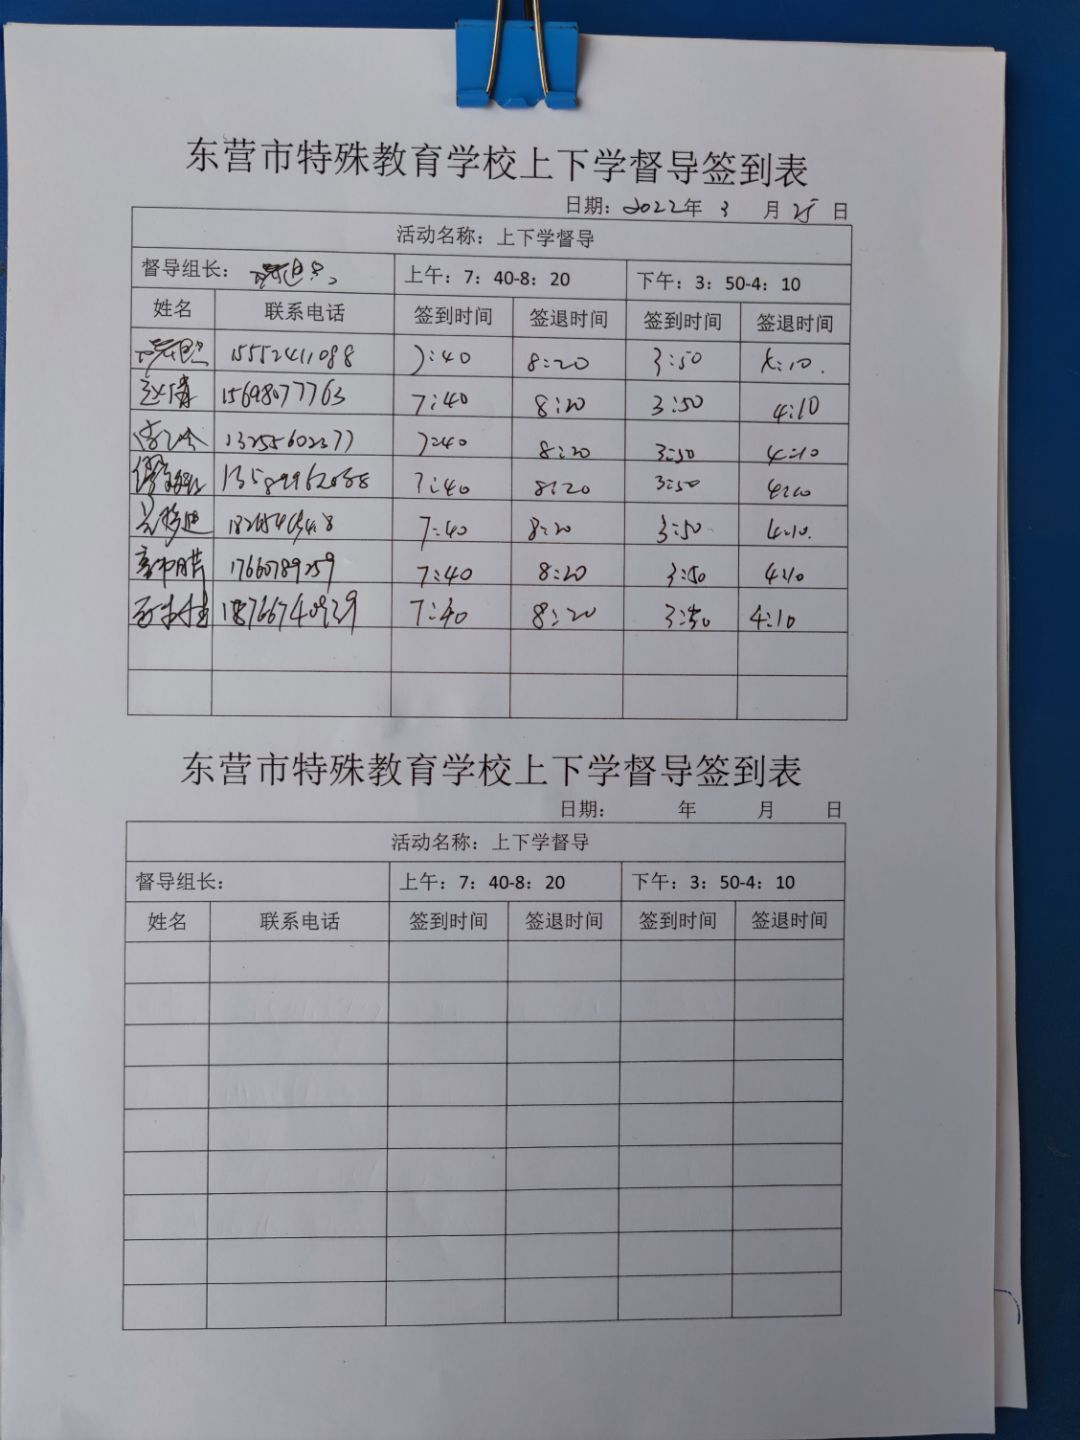 东营市特殊教育学校上下学督导签到表
日期：2022年 3 月 25 日
活动名称：上下学督导
督导组长： 上午：7：40-8：20 下午：3：50-4：10
姓名 联系电话 签到时间 签退时间 签到时间 签退时间
15552411088 7:40 8:20 3:50 4:10.
赵倩 15698077763 7:40 8:20 3:50 4:10
13255602377 7:40 8:20 3:50 4:10
13589962088 7:40 8:20 3:50 4:10
7:40 8:20 3:50 4:10.
17660789259 7:40 8:20 3:50 4:10
18766740929 7:40 8:20 3:50 4:10
东营市特殊教育学校上下学督导签到表
日期： 年 月 日
活动名称：上下学督导
督导组长： 上午：7：40-8：20 下午：3：50-4：10
姓名 联系电话 签到时间 签退时间 签到时间 签退时间